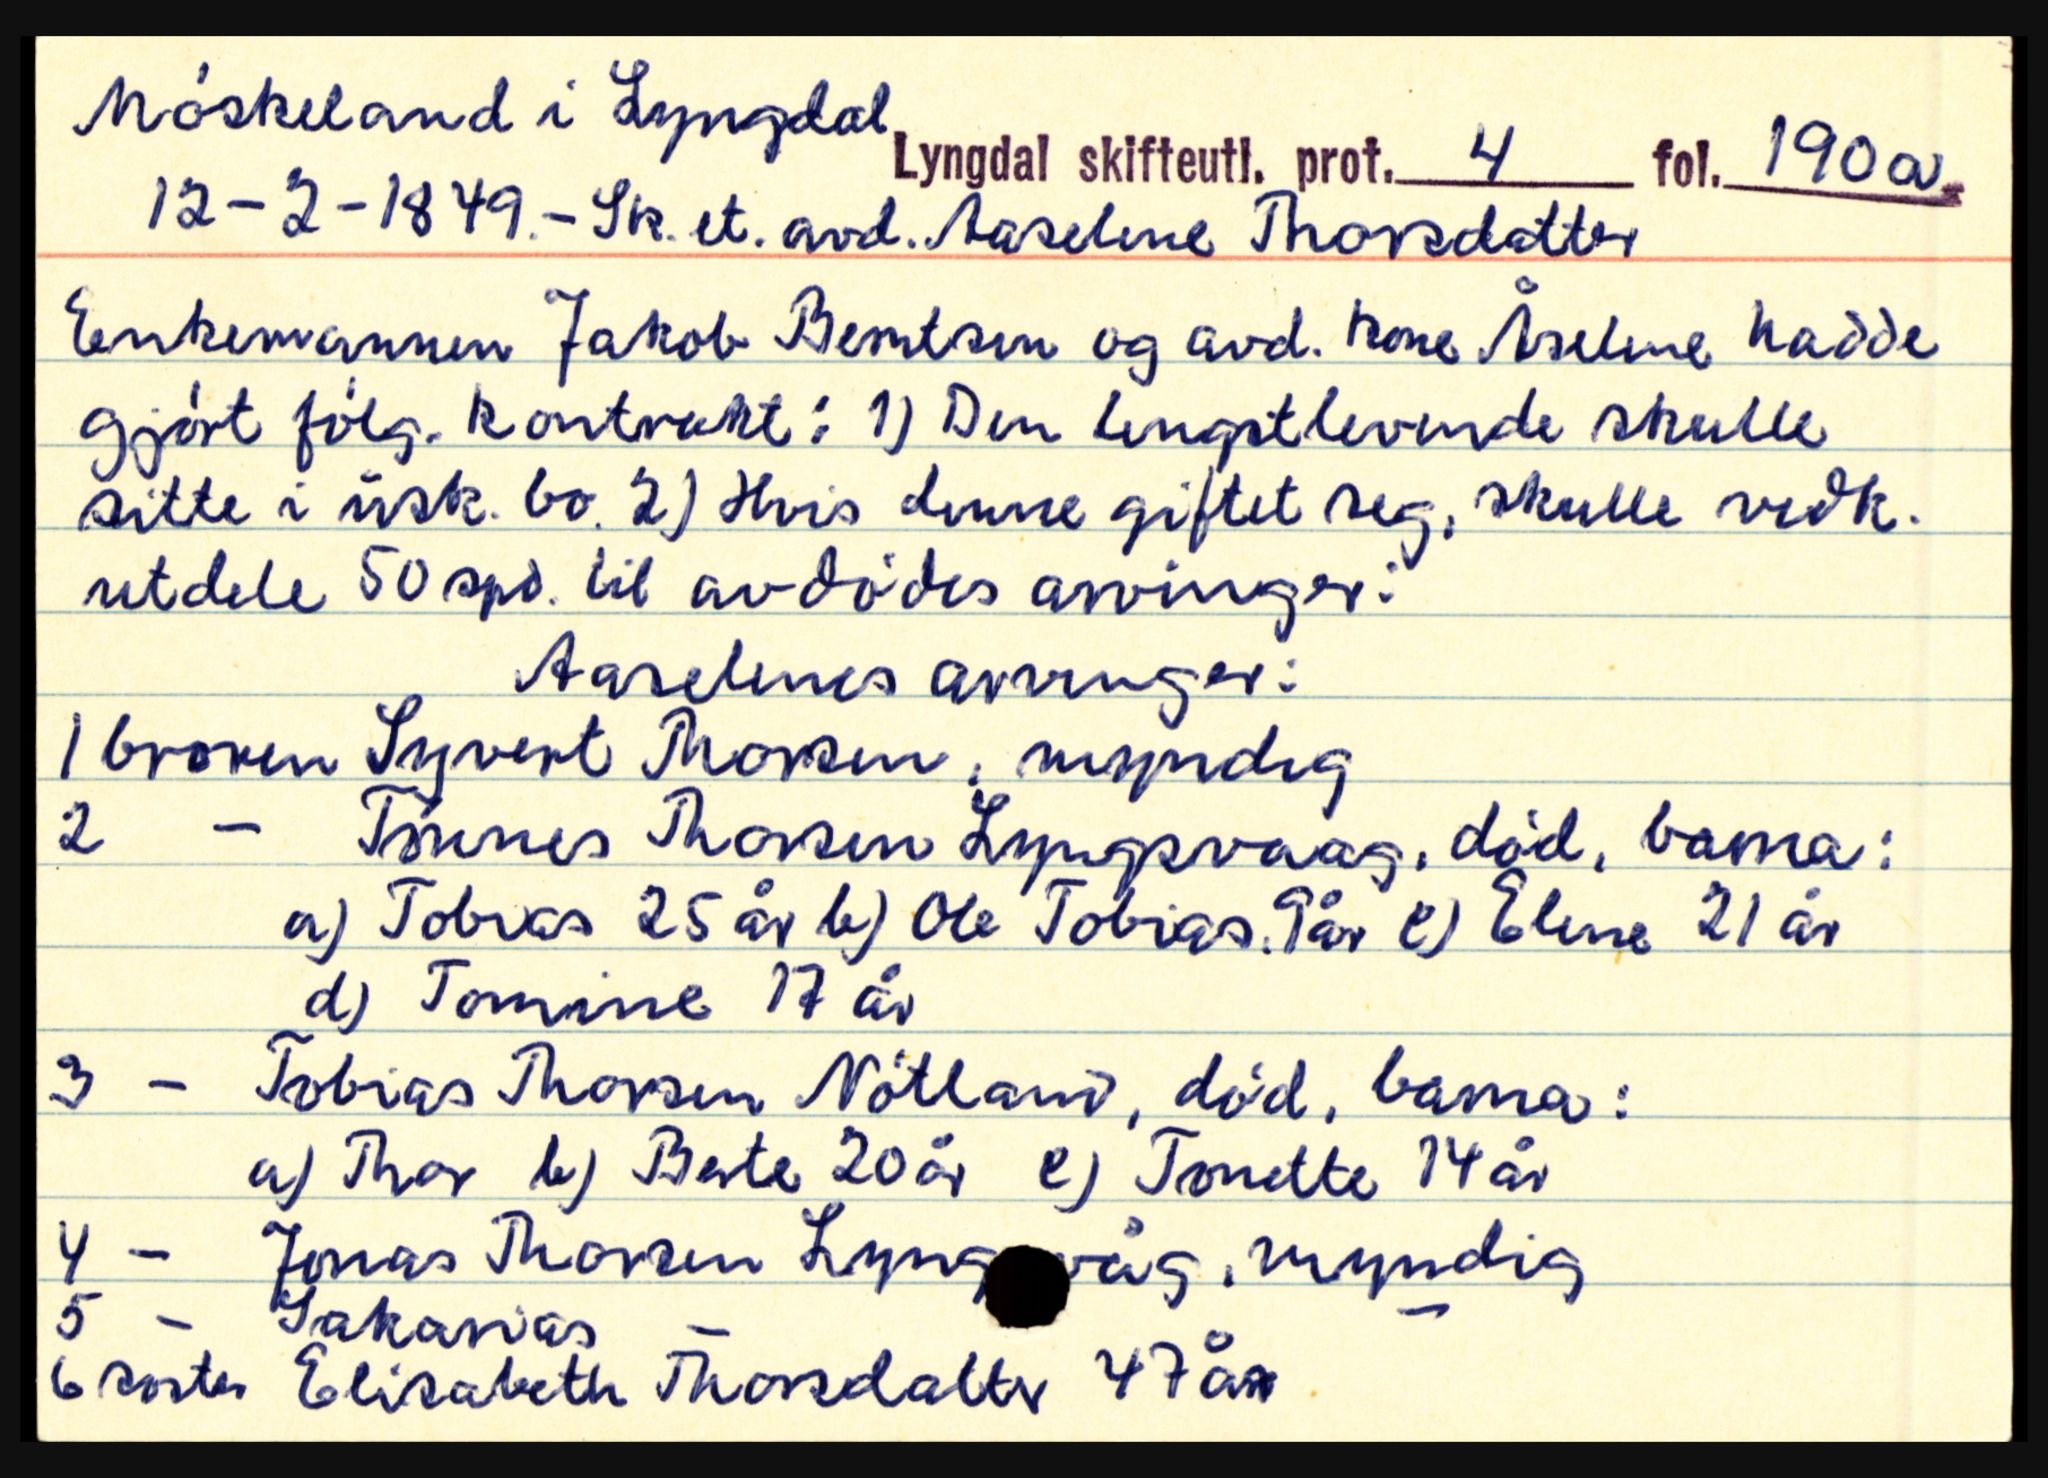 Möskeland i Lyngdal
Lyngdal skifteutl. prot. 4 fol. 190a
12-2-1849.- Sk. et. avd. Aaselene Thorsdatter
Enkemannen Jakob Berntsen og avd. kone Åselene hadde
gjört fölg. kontrakt: 1) Den lengstlevende skulle
sitte i úsk. bo. 2) Hvis denne giftet seg, skulle vedk.
utdele 50 spd. til avdödes arvinger:
Aaselenes arvinger:
1 broren Syvert Thorsen, myndig
2 - Tönnes Thorsen Lyngsvaag, död, barna:
a) Tobias 25 år b) Ole Tobias. 9 år c) Elene 21 år
d) Tomine 17 år
3 - Tobias Thorsen Nötland, död, barna:
a) Thor b) Berte 20 år c) Tonette 14 år
4 - Jonas Thorsen Lyng våg, myndig
5 - Sakarias - -
6 söster Elisabeth Thorsdatter 47 år